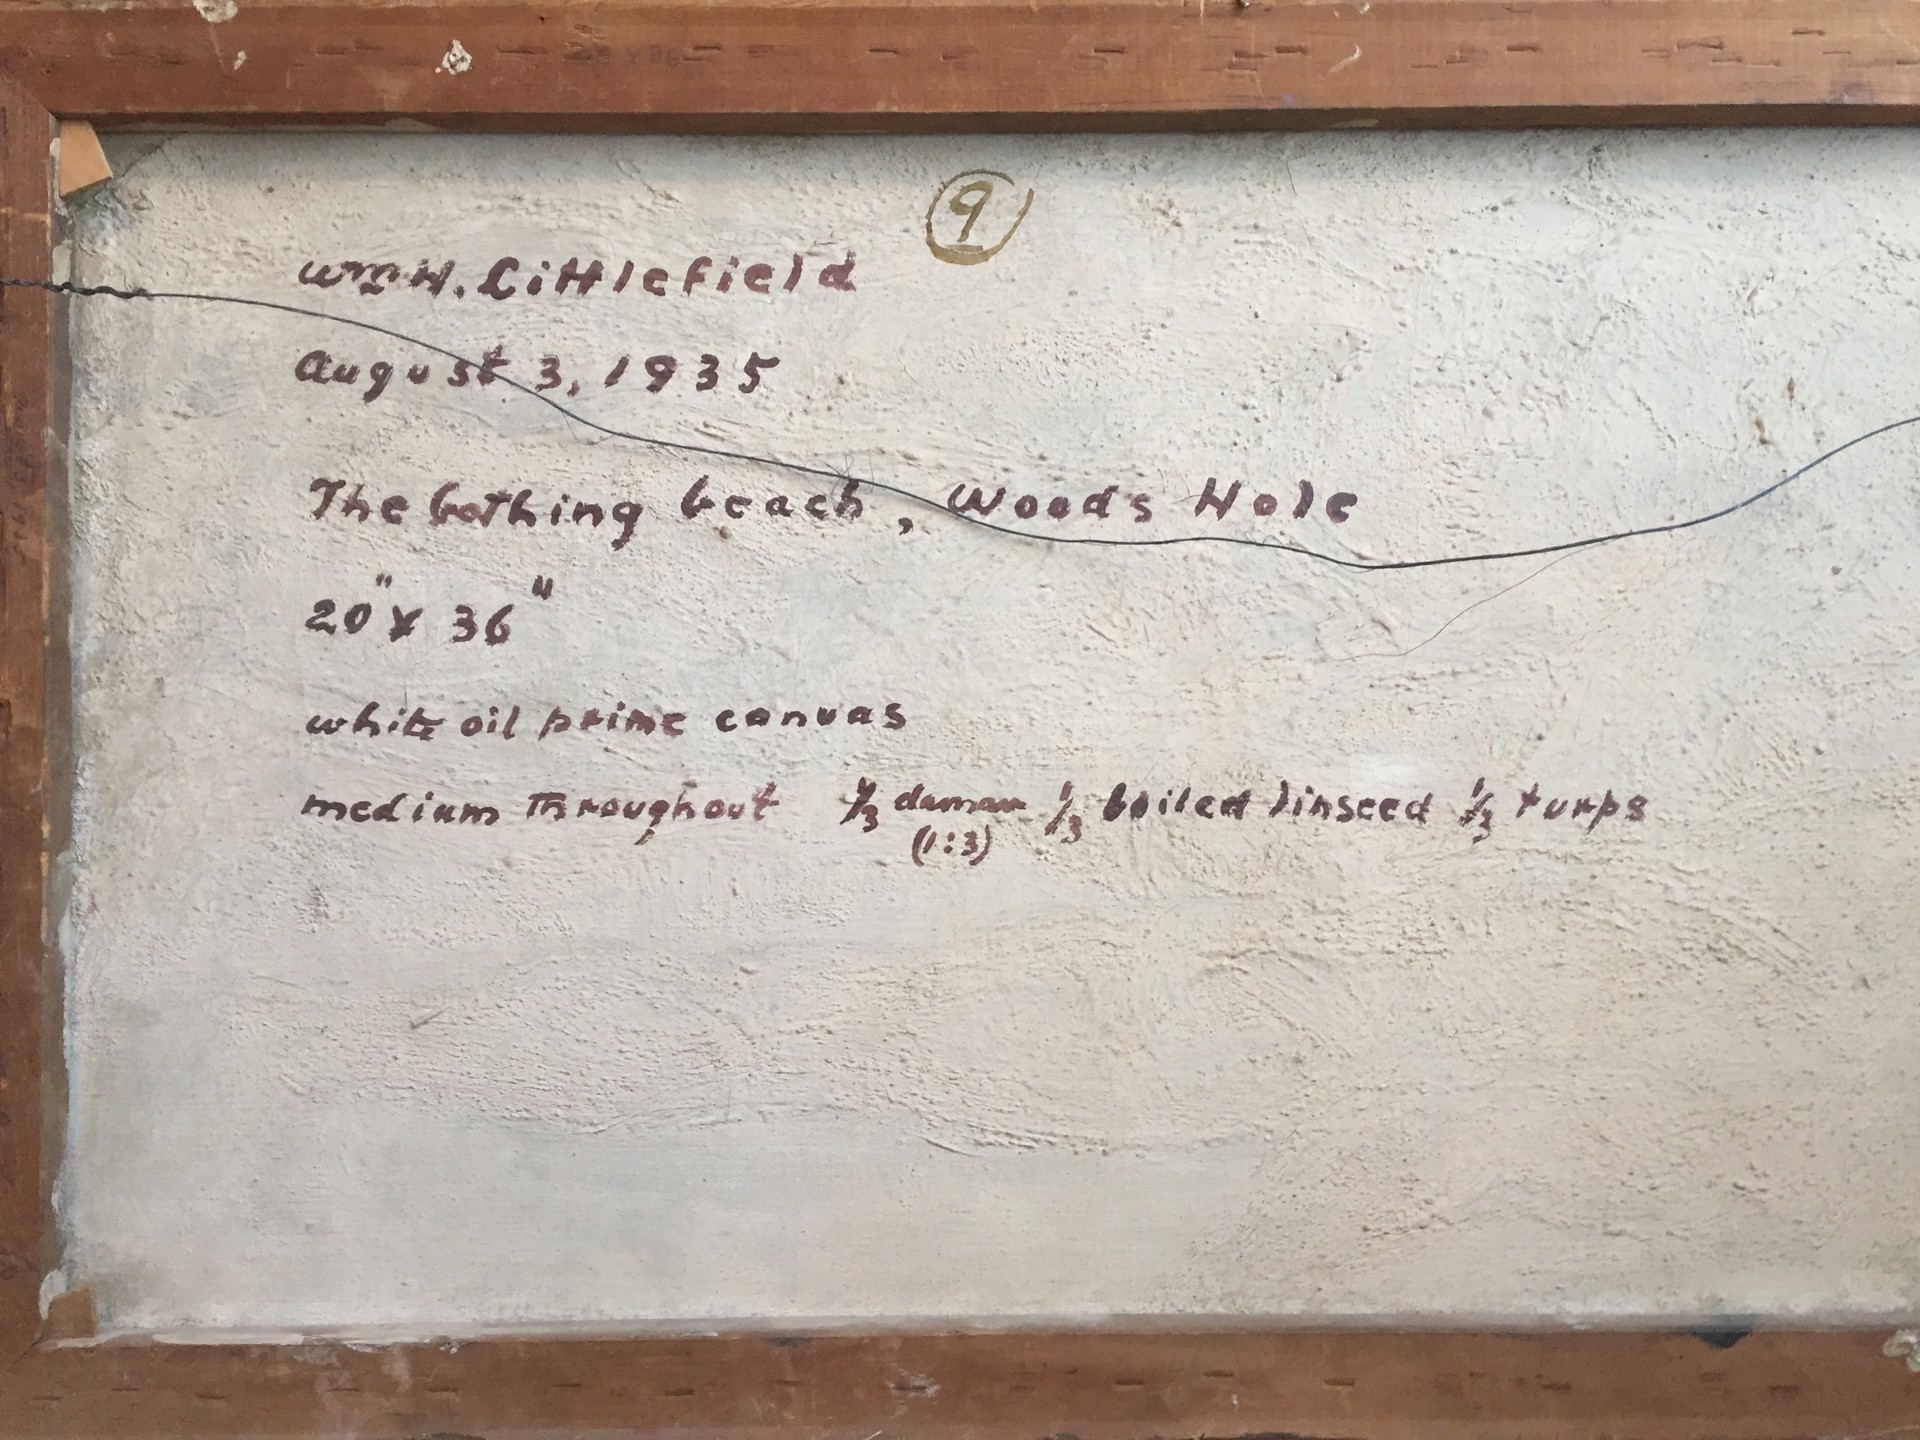 9
Wm H. Littlefield
August 3, 1935
The bathing beach, Woods Hole
20" x 36"
white oil prime canvas
medium throughout 1/3 damar 1/3 boiled linseed 1/3 turps
(1:3)